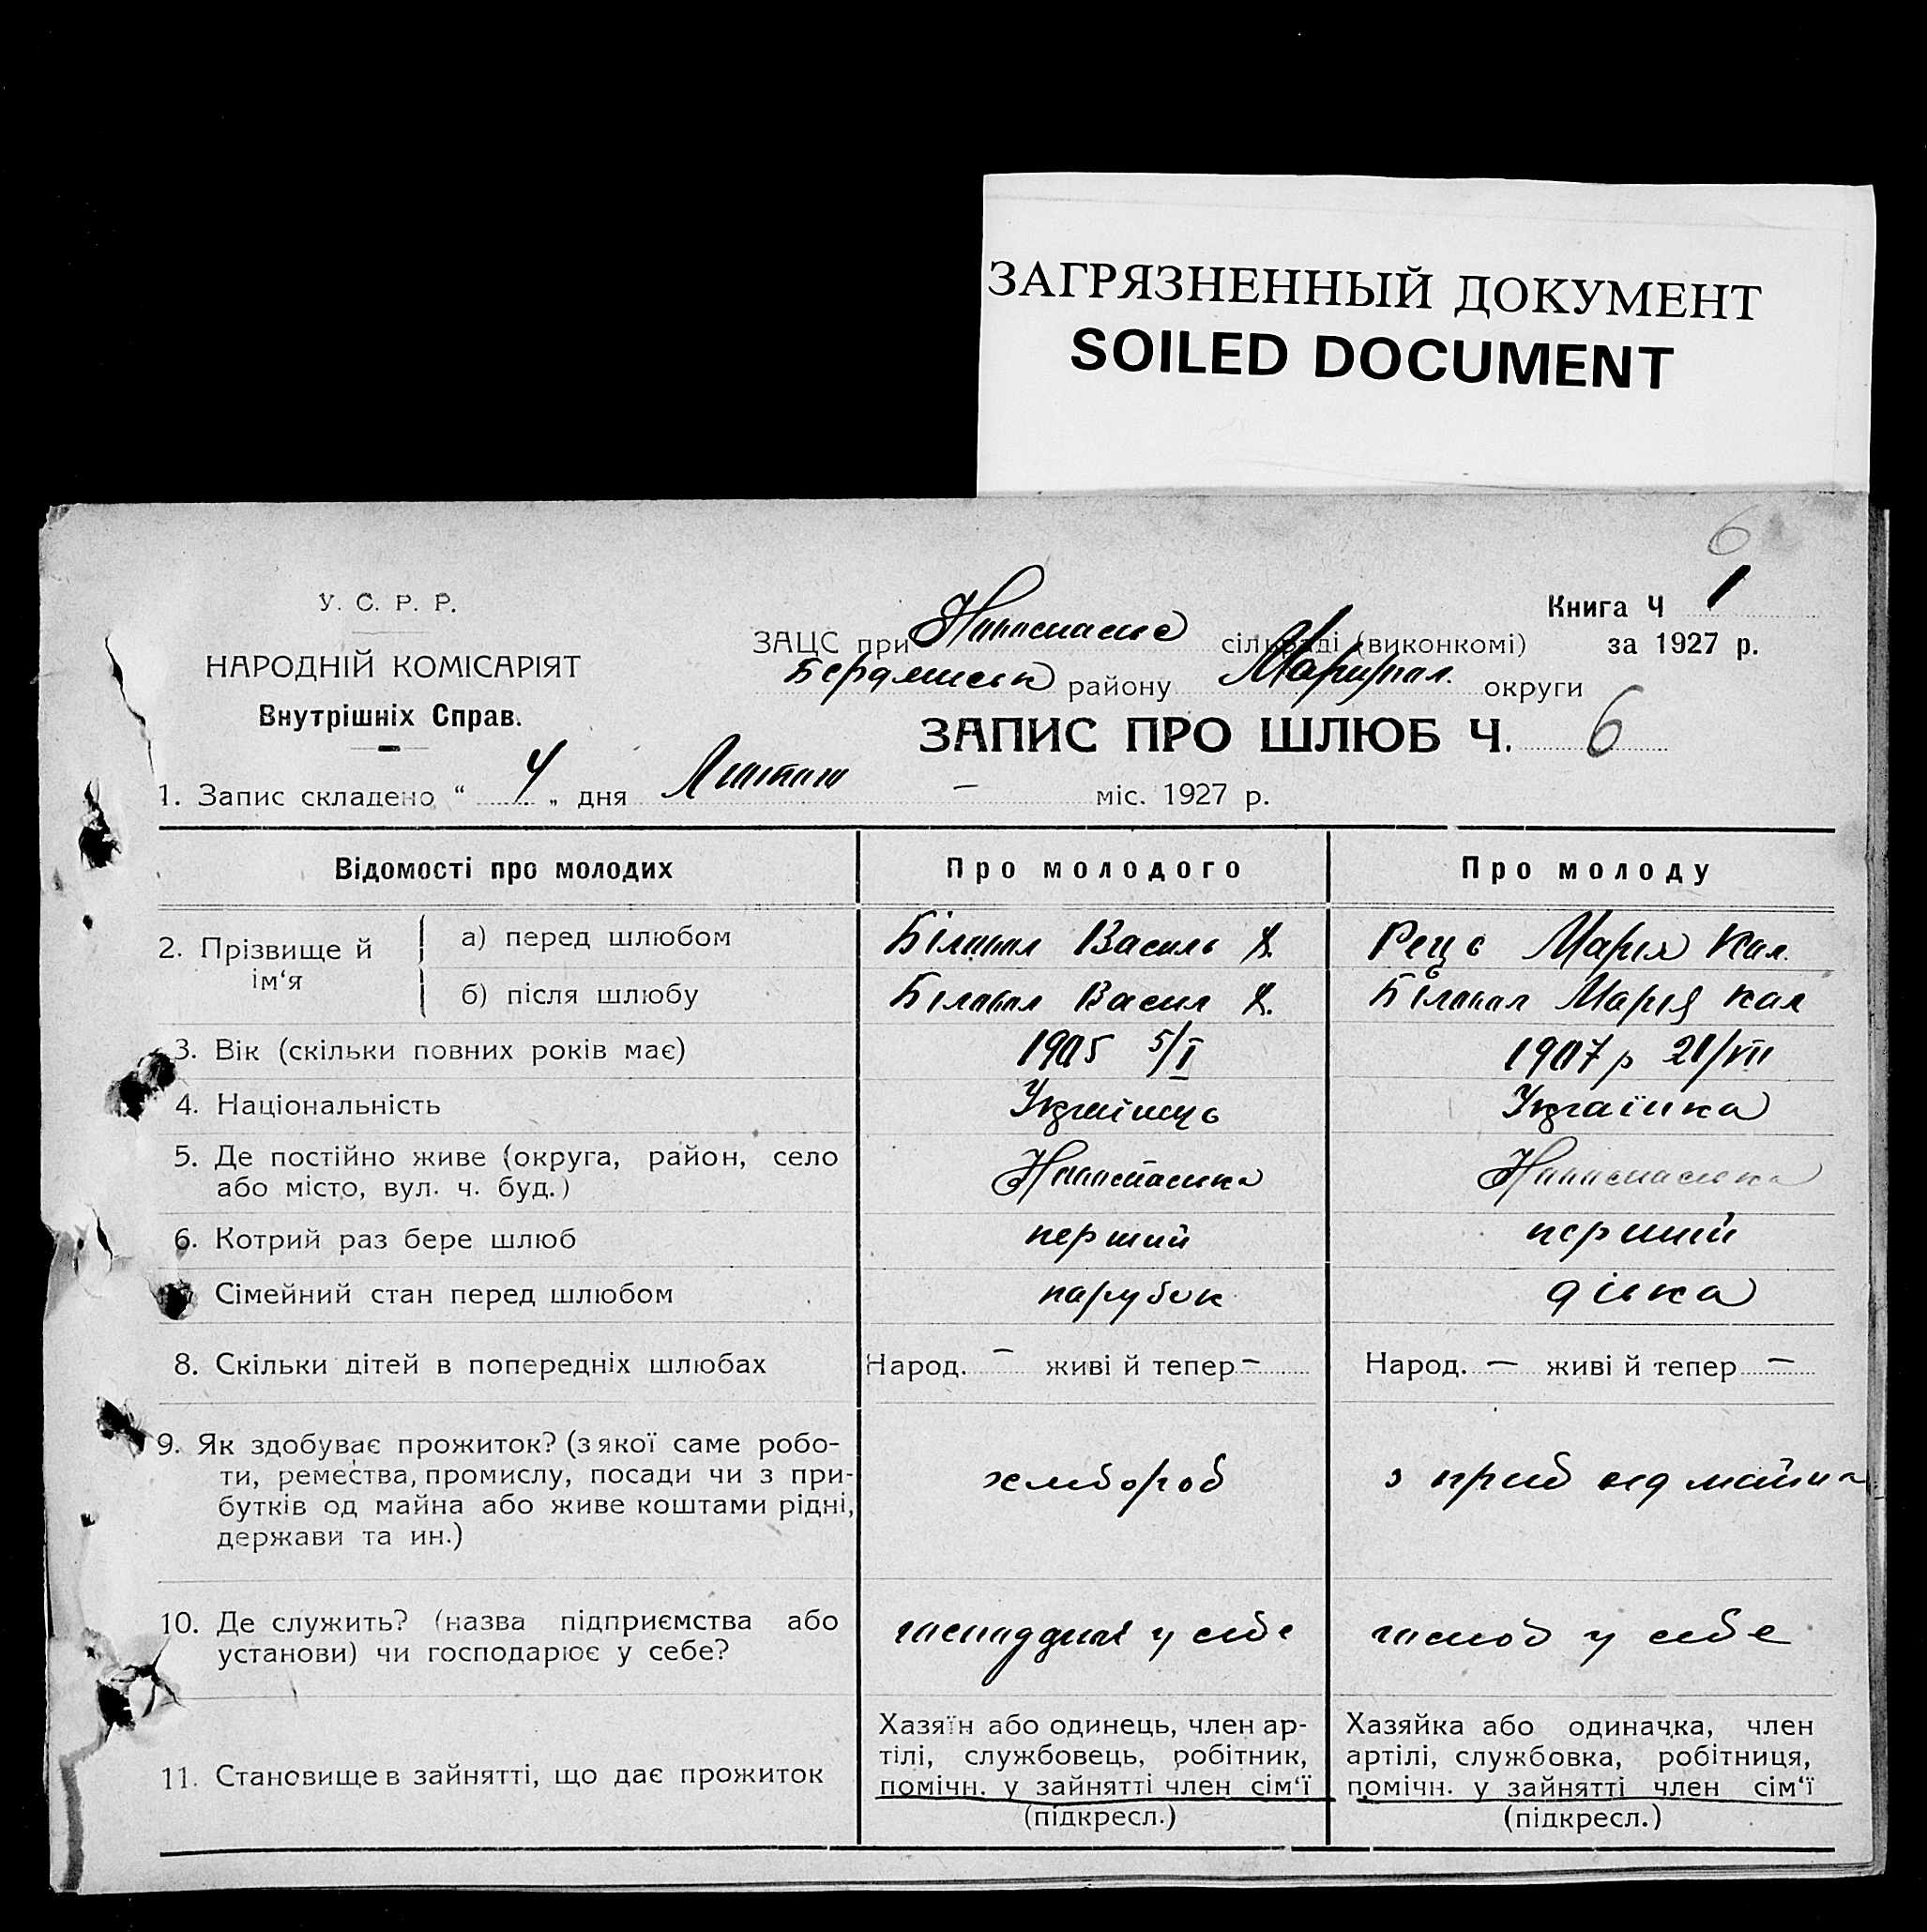 ЗАГРЯЗНЕННЫЙ ДОКУМЕНТ
SOILED DOCUMENT
6
У. С. Р. Р.
НАРОДНІЙ КОМІСАРІЯТ
Внутрішніх Справ.
Книга Ч 1
ЗАЦС при сільраді (виконкомі) за 1927 р.
Бердянськ району Маріупол. округи
ЗАПИС ПРО ШЛЮБ Ч. 6
1. Запис складено “ 4 „ дня — міс. 1927 р.
Відомості про молодих Про молодого Про молоду
2. Прізвище й ім‘я
а) перед шлюбом Білаш Василь Марія Кал.
б) після шлюбу Марія Кал
3. Вік (скільки повних років має) 1905 5/I 1907 р 21/VII
4. Національність Українець Українка
5. Де постійно живе (округа, район, село
або місто, вул. ч. буд.) Новоспаська Новоспаська
6. Котрий раз бере шлюб перший перший
Сімейний стан перед шлюбом парубок дівка
8. Скільки дітей в попередніх шлюбах Народ. — живі й тепер — Народ. — живі й тепер —
9. Як здобуває прожиток? (з якої саме робо-
ти, ремества, промислу, посади чи з при-
бутків од майна або живе коштами рідні,
держави та ин.) хлібороб з приб від майна
10. Де служить? (назва підприємства або
установи) чи господарює у себе? у себе у себе
11. Становище в зайнятті, що дає прожиток
Хазяїн або одинець, член ар-
тілі, службовець, робітник,
помічн. у зайнятті член сім‘ї
(підкресл.)
Хазяйка або одиначка, член
артілі, службовка, робітниця,
помічн. у зайнятті член сім‘ї
(підкресл.)